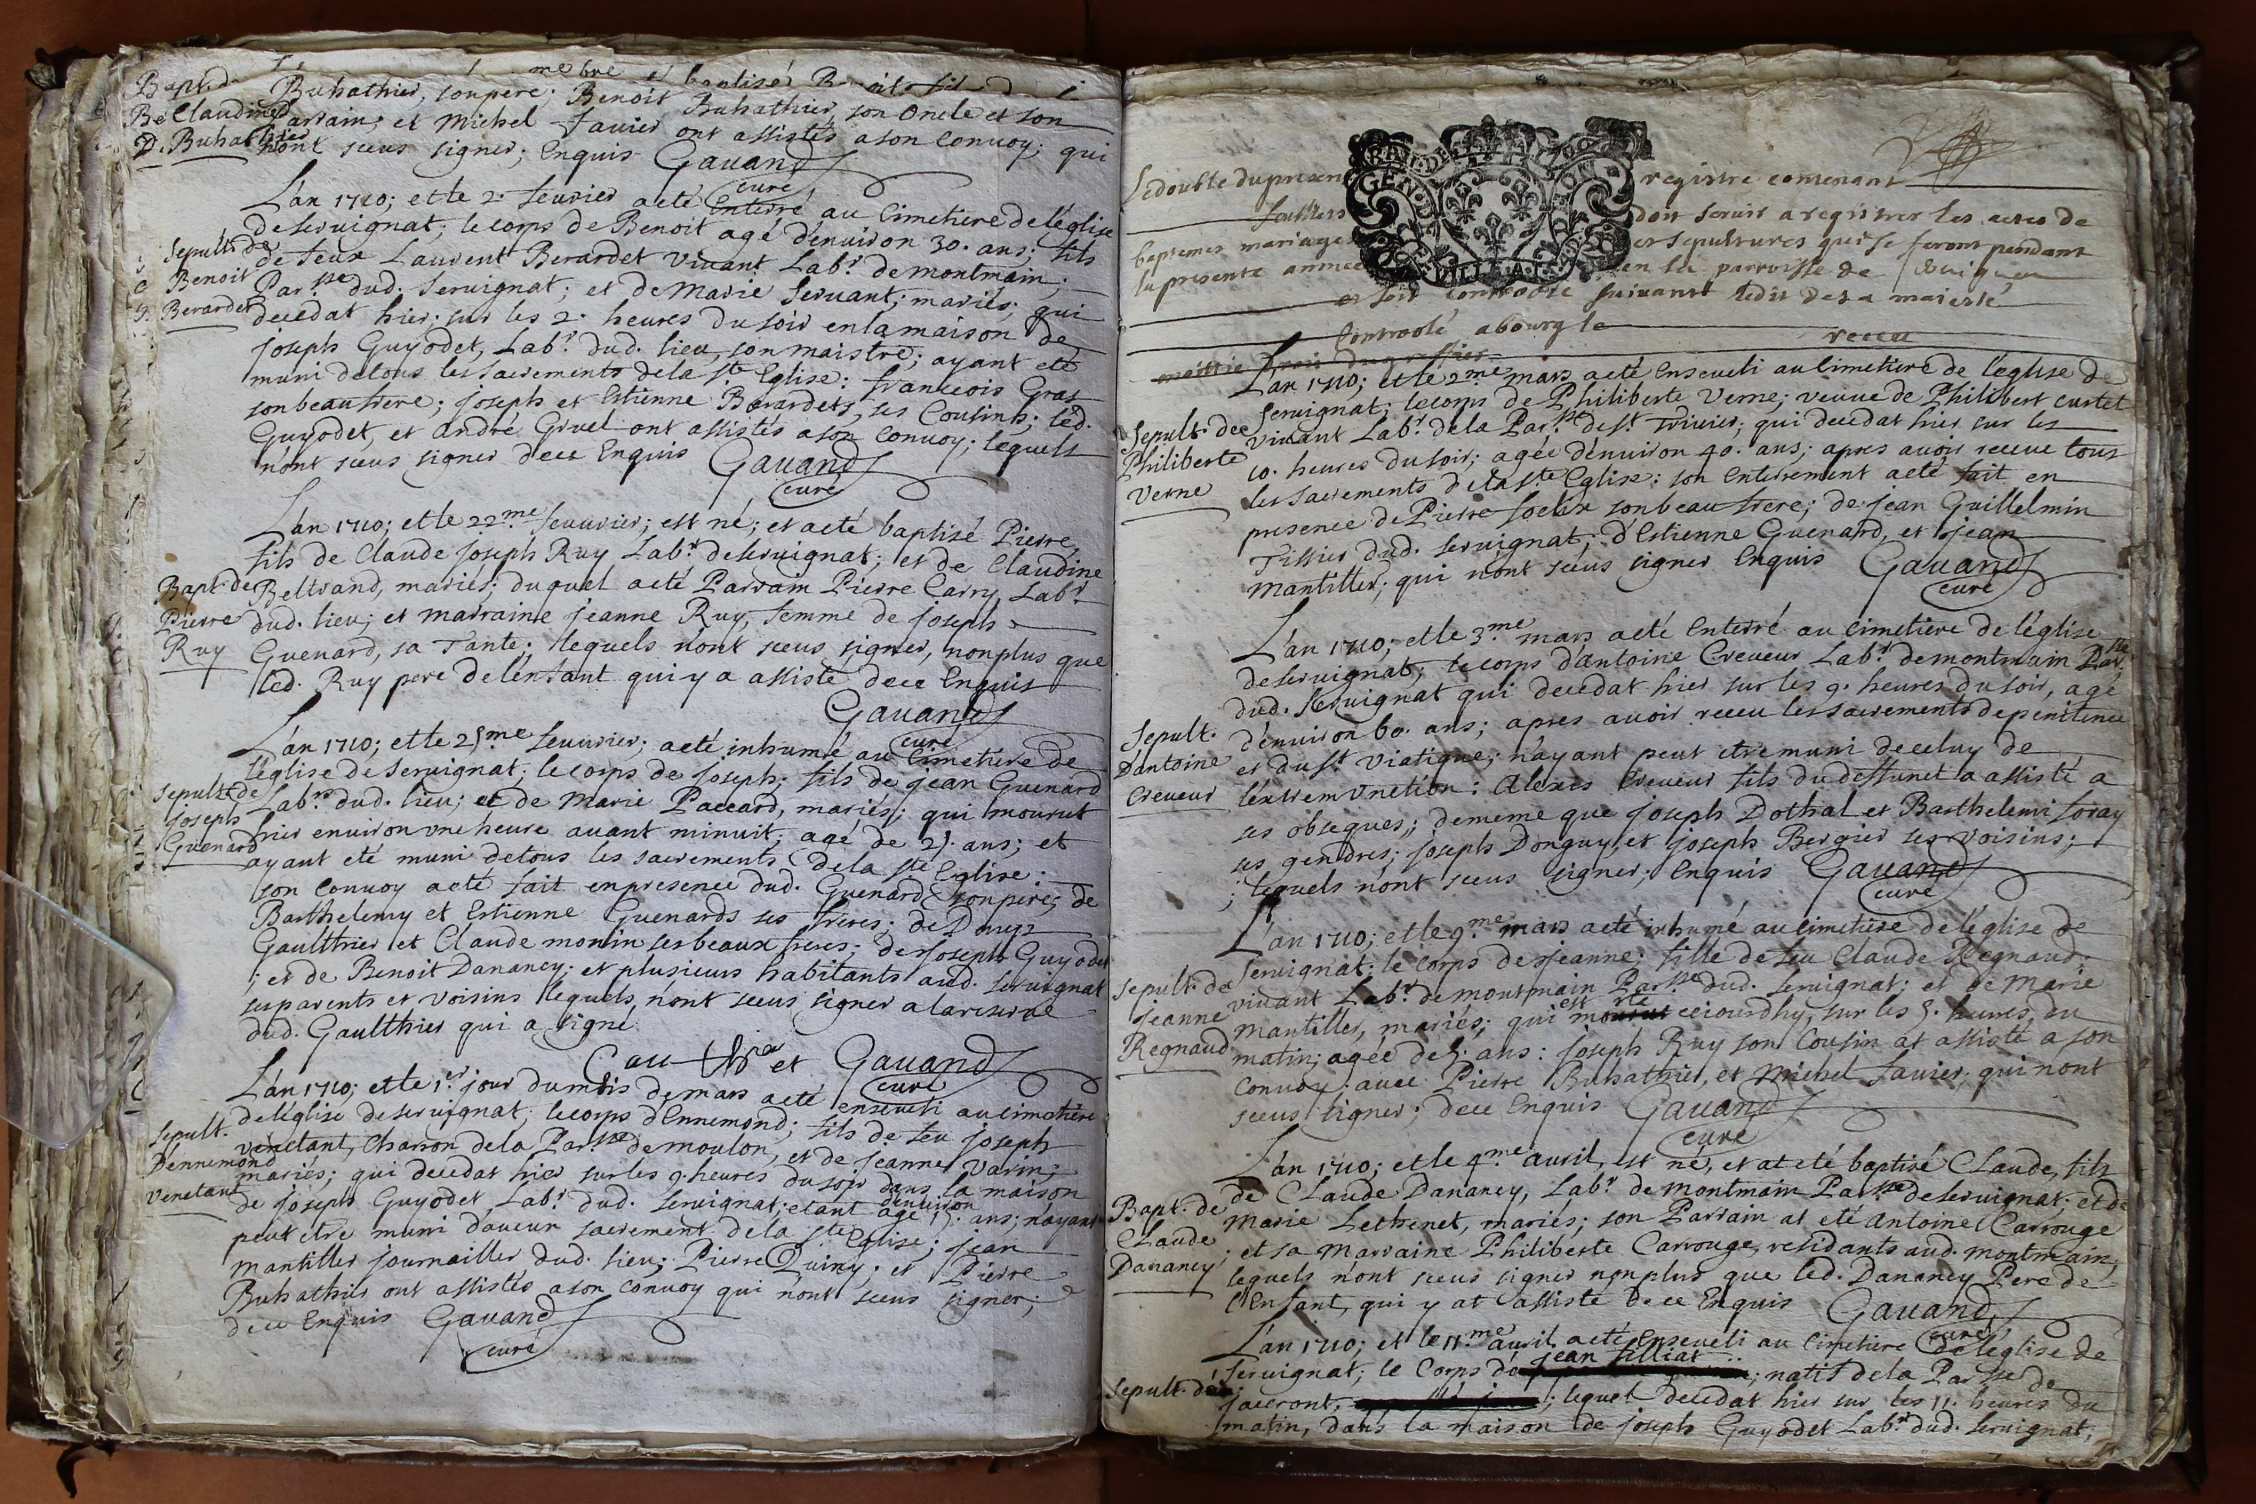 Bapt. de
Be Claudine
D. Buhathier
Buhathier, son pere; Benoit Buhathier, son Oncle et son
Parrain; et Michel Favier ont assistés a son Convoy; qui
n'ont sceus signer; Enquis Gavand
curé
L'an 1710; et le 2e fevrier a eté Enterré au Cimetiere de l'église
de Servignat; le corps de Benoit agé d'environ 30. ans; fils
Sepult. de
Benoit
Berardet
de feux Laurent Berardet vivant Labr. de montmain;
Par.sse dud. Servignat; et de Marie Servant; mariés; qui
decedat hier; sur les 2. heures du soir en la maison de
joseph Guyodet, Labr. dud. lieu, son maistre; ayant eté
muni de tous les sacrements de la Ste Eglise: francois Gras
son beaufrere; joseph et Estienne Berardets, ses Cousins; led.
Guyodet, et André Gruel ont assistés a son Convoy; lequels
n'ont sceus signer de ce Enquis Gavand
curé
L'an 1710; et le 22me fevrier; est né; et a eté baptisé Pierre,
fils de Claude joseph Ruy Labr. de Servignat; et de Claudine
Bapt. de
Pierre
Ruy
Beltrand, mariés; duquel a eté Parrain Pierre Carry Labr.
dud. lieu; et marraine jeanne Ruy, femme de joseph
Guenard, sa Tante; lequels n'ont sceus signer, non plus que
led. Ruy pere de l'enfant qui y a assisté de ce Enquis
Gavand
curé
L'an 1710; et le 25me fevrier; a eté inhumé au Cimetiere de
l'église de Servignat; le corps de joseph; fils de jean Guenard
Sepult. de
joseph
Guenard
Labr. dud. lieu; et de Marie Paccard, mariés; qui mourut
hier environ une heure avant minuit; agé de 25. ans; et
ayant eté muni de tous les sacrements de la Ste Eglise:
son Convoy a eté fait en presence dud. Guenard son pere; de
Barthelemy et Estienne Guenards ses freres; de Denys
Gaulthier et Claude monin ses beaux freres; de joseph Guyodet
; et de Benoit Danancy; et plusieurs habitants aud. Servignat
ses parents et voisins lequels, n'ont sceus signer a la reserve
dud. Gaulthier qui a signé
Gauthier et Gavand
curé
L'an 1710; et le 1er jour du mois de mars a eté enseveli au cimetiere
de l'église de Servignat; le corps d'Ennemond; fils de feu joseph
Sepult.
D'ennemond
Venetant
Venetant, Charron de la Par.sse de moulon, et de jeanne Varin;
mariés; qui decedat hier sur les 9. heures du soir dans la maison
de joseph Guyodet Labr. dud. Servignat; etant agé d'environ 15. ans; n'ayant
peut etre muni d'aucun sacrement de la Ste Eglise; jean
Mantiller journailler dud. lieu; Pierre Quiny; et Pierre
Buhathier ont assistés a son convoy qui n'ont sceus signer;
de ce Enquis Gavand
curé
Le double du present registre contenant
feuillets doit servir a registrer les actes de
baptemes mariages et sepultures qui se feront pendant
la presente année en la parroisse de Servignat
et soit controolé suivant ledit de sa majesté
Controolé a bourg le
receu
moitié
GEN. D
L'an 1710; et le 2me mars a eté enseveli au Cimetiere de l'église de
Servignat; le corps de Philiberte Verne; veuve de Philibert Curtet
Sepult. de
Philiberte
Verne
vivant Labr. de la Par.sse de St. Trivier; qui decedat hier sur les
10. heures du soir; agée d'environ 40. ans; apres avoir receue tous
les sacrements de la Ste Eglise: son enterrement a eté fait en
presence de Pierre foelix son beau frere; de jean Guillelmin
Tissier dud. Servignat; d'Estienne Guenard, et jean
Mantiller; qui n'ont sceus signer Enquis Gavand
curé
L'an 1710; et le 3me mars a eté Enterré au cimetiere de l'église
de Servignat; le corps d'antoine Creveur Labr. de montmain Par.sse
dud. Servignat qui decedat hier sur les 9. heures du soir, agé
Sepult.
D'antoine
Creveur
d'environ 60. ans; apres avoir receu les sacrements de penitence
et du St Viatique; n'ayant peut etre muni de celuy de
l'extrem onction: Alexis Creveur fils du deffunct a assisté a
ses obseques; de meme que joseph Dothal et Barthelemi foray
ses gendres; joseph Donguy, et joseph Bergier ses voisins;
; lequels n'ont sceus signer; Enquis Gavand
curé
L'an 1710; et le 9me mars a eté inhumé au cimetiere de l'église de
Servignat; le corps de jeanne; fille de feu Claude Regnaud;
Sepult. de
jeanne
Regnaud
vivant Labr. de montmain Par.sse dud. Servignat; et de Marie
Mantiller, mariés; qui est morte cejourdhy, sur les 5. heures du
matin; agée de 5. ans: joseph Ruy son Cousin at assisté a son
Convoy. avec Pierre Buhathier, et Michel Favier; qui n'ont
sceus signer; de ce Enquis Gavand
curé
L'an 1710; et le 4me avril, est né, et at eté baptisé Claude, fils
de Claude Danancy, Labr. de montmain Par.sse de Servignat; et de
Bapt. de
Claude
Danancy
Marie Lethenet, mariés; son Parrain at eté Antoine Carrouge
; et sa Marraine Philiberte Carrouge, residants aud. montmain;
lequels n'ont sceus signer non plus que led. Danancy Pere de
l'Enfant, qui y at assisté de ce Enquis Gavand
curé
L'an 1710; et le 11me avril a eté Enseveli au Cimetiere de l'église de
Servignat; le Corps de jean filliat; natif de la Par.sse de
Sepult. de
jaceront, ; lequel decedat hier sur les 11. heures du
matin, dans la maison de joseph Guyodet Labr. dud. Servignat;